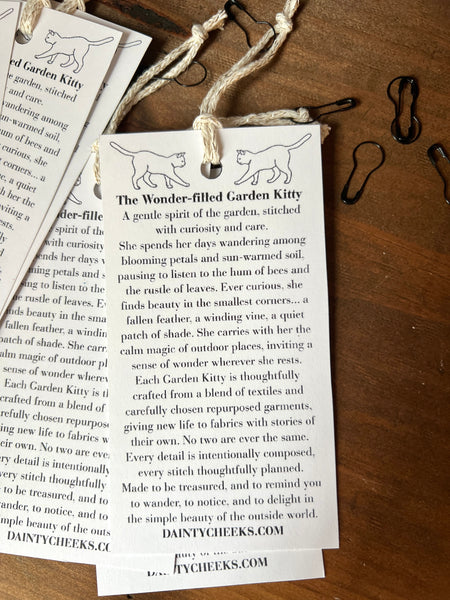 The Wonder-filled Garden Kitty
A gentle spirit of the garden, stitched
with curiosity and care.
She spends her days wandering among
blooming petals and sun-warmed soil,
pausing to listen to the hum of bees and
the rustle of leaves. Ever curious, she
finds beauty in the smallest corners... a
fallen feather, a winding vine, a quiet
patch of shade. She carries with her the
calm magic of outdoor places, inviting a
sense of wonder wherever she rests.
Each Garden Kitty is thoughtfully
crafted from a blend of textiles and
carefully chosen repurposed garments,
giving new life to fabrics with stories of
their own. No two are ever the same.
Every detail is intentionally composed,
every stitch thoughtfully planned.
Made to be treasured, and to remind you
to wander, to notice, and to delight in
the simple beauty of the outside world.
DAINTYCHEEKS.COM
DAINTYCHEEKS.COM
ed Garden Kitty
e garden, stitched
and care.
wandering among
sun-warmed soil,
hum of bees and
curious, she
corners... a
a quiet
her the
inviting a
rests.
spirit of the
with curiosity
spends her days
petals and
to listen to the
the rustle of leaves. Ever
finds beauty in the small
fallen feather, a winding
patch of shade. She carri
calm magic of outdoor pla
sense of wonder wherever
Each Garden Kitty is t
crafted from a blend of
carefully chosen repurpose
giving new life to fabrics w
their own. No two are ever
Every detail is intentionally
every stitch thoughtfully
Made to be treasured, and to
to wander, to notice, and to
the simple beauty of the outs
DAINTYCHEEKS.CO